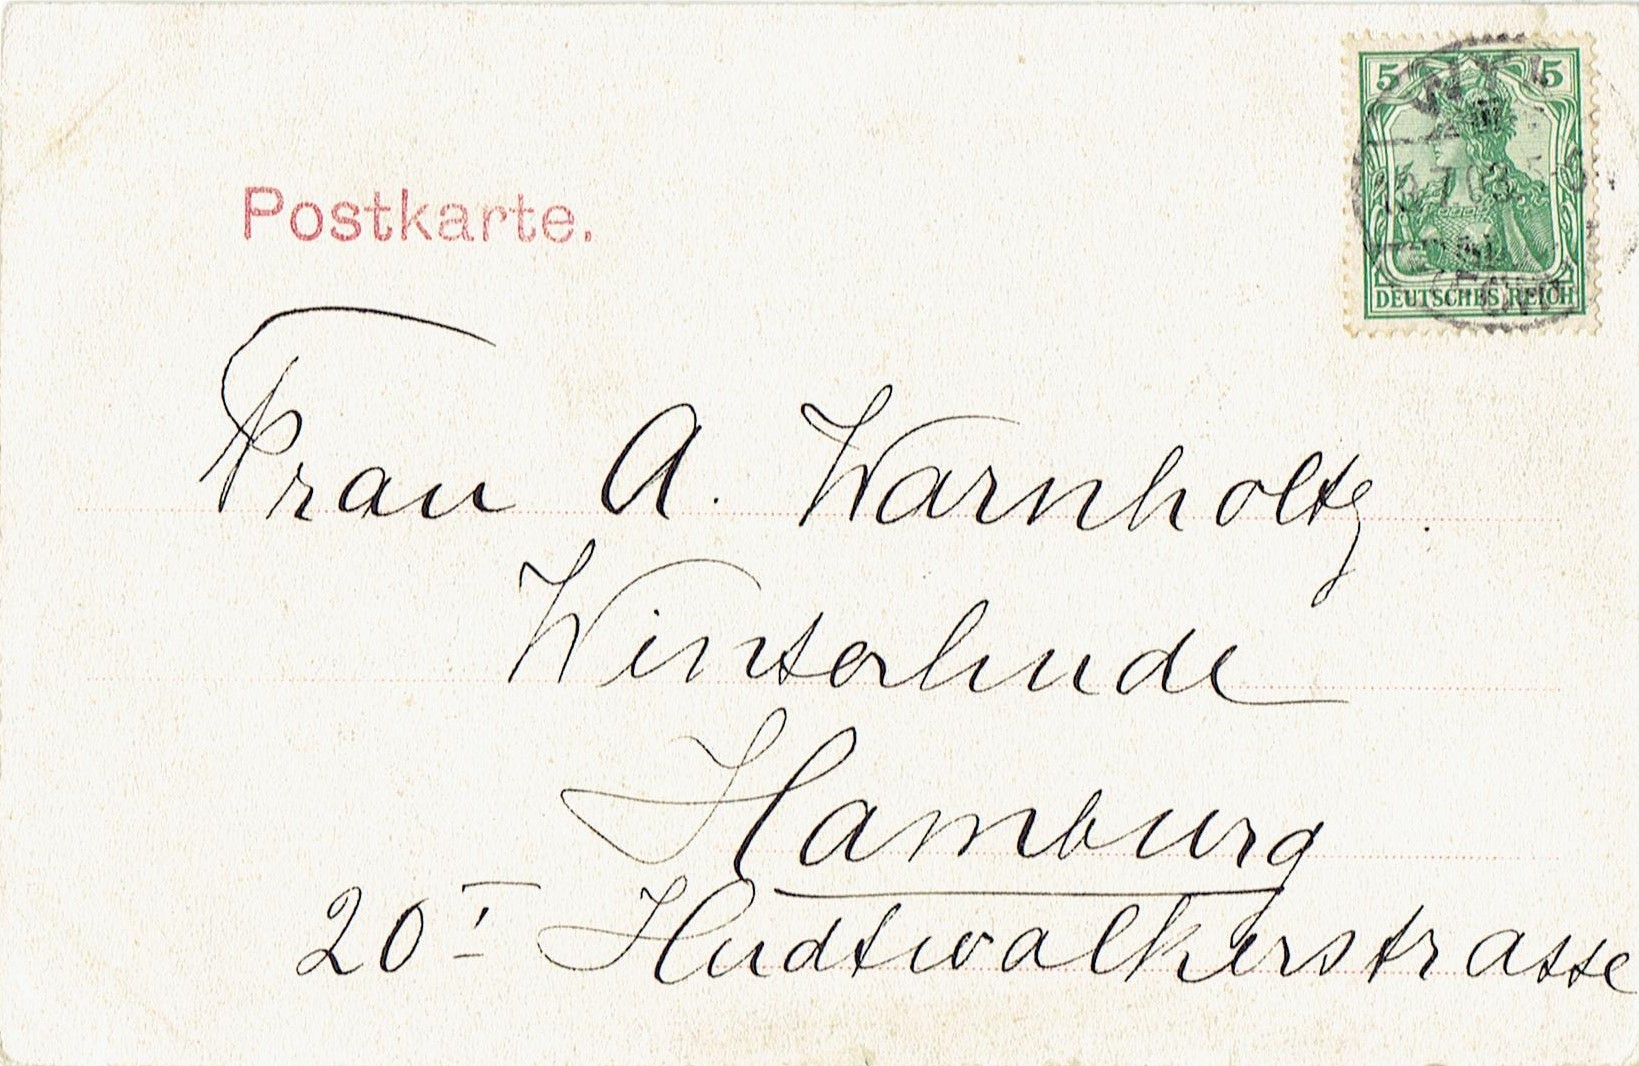 5 5
DEUTSCHES REICH
Postkarte.
Frau A. Warnholtz.
Winterhude
Hamburg
20 I Hudtwalkerstrasse